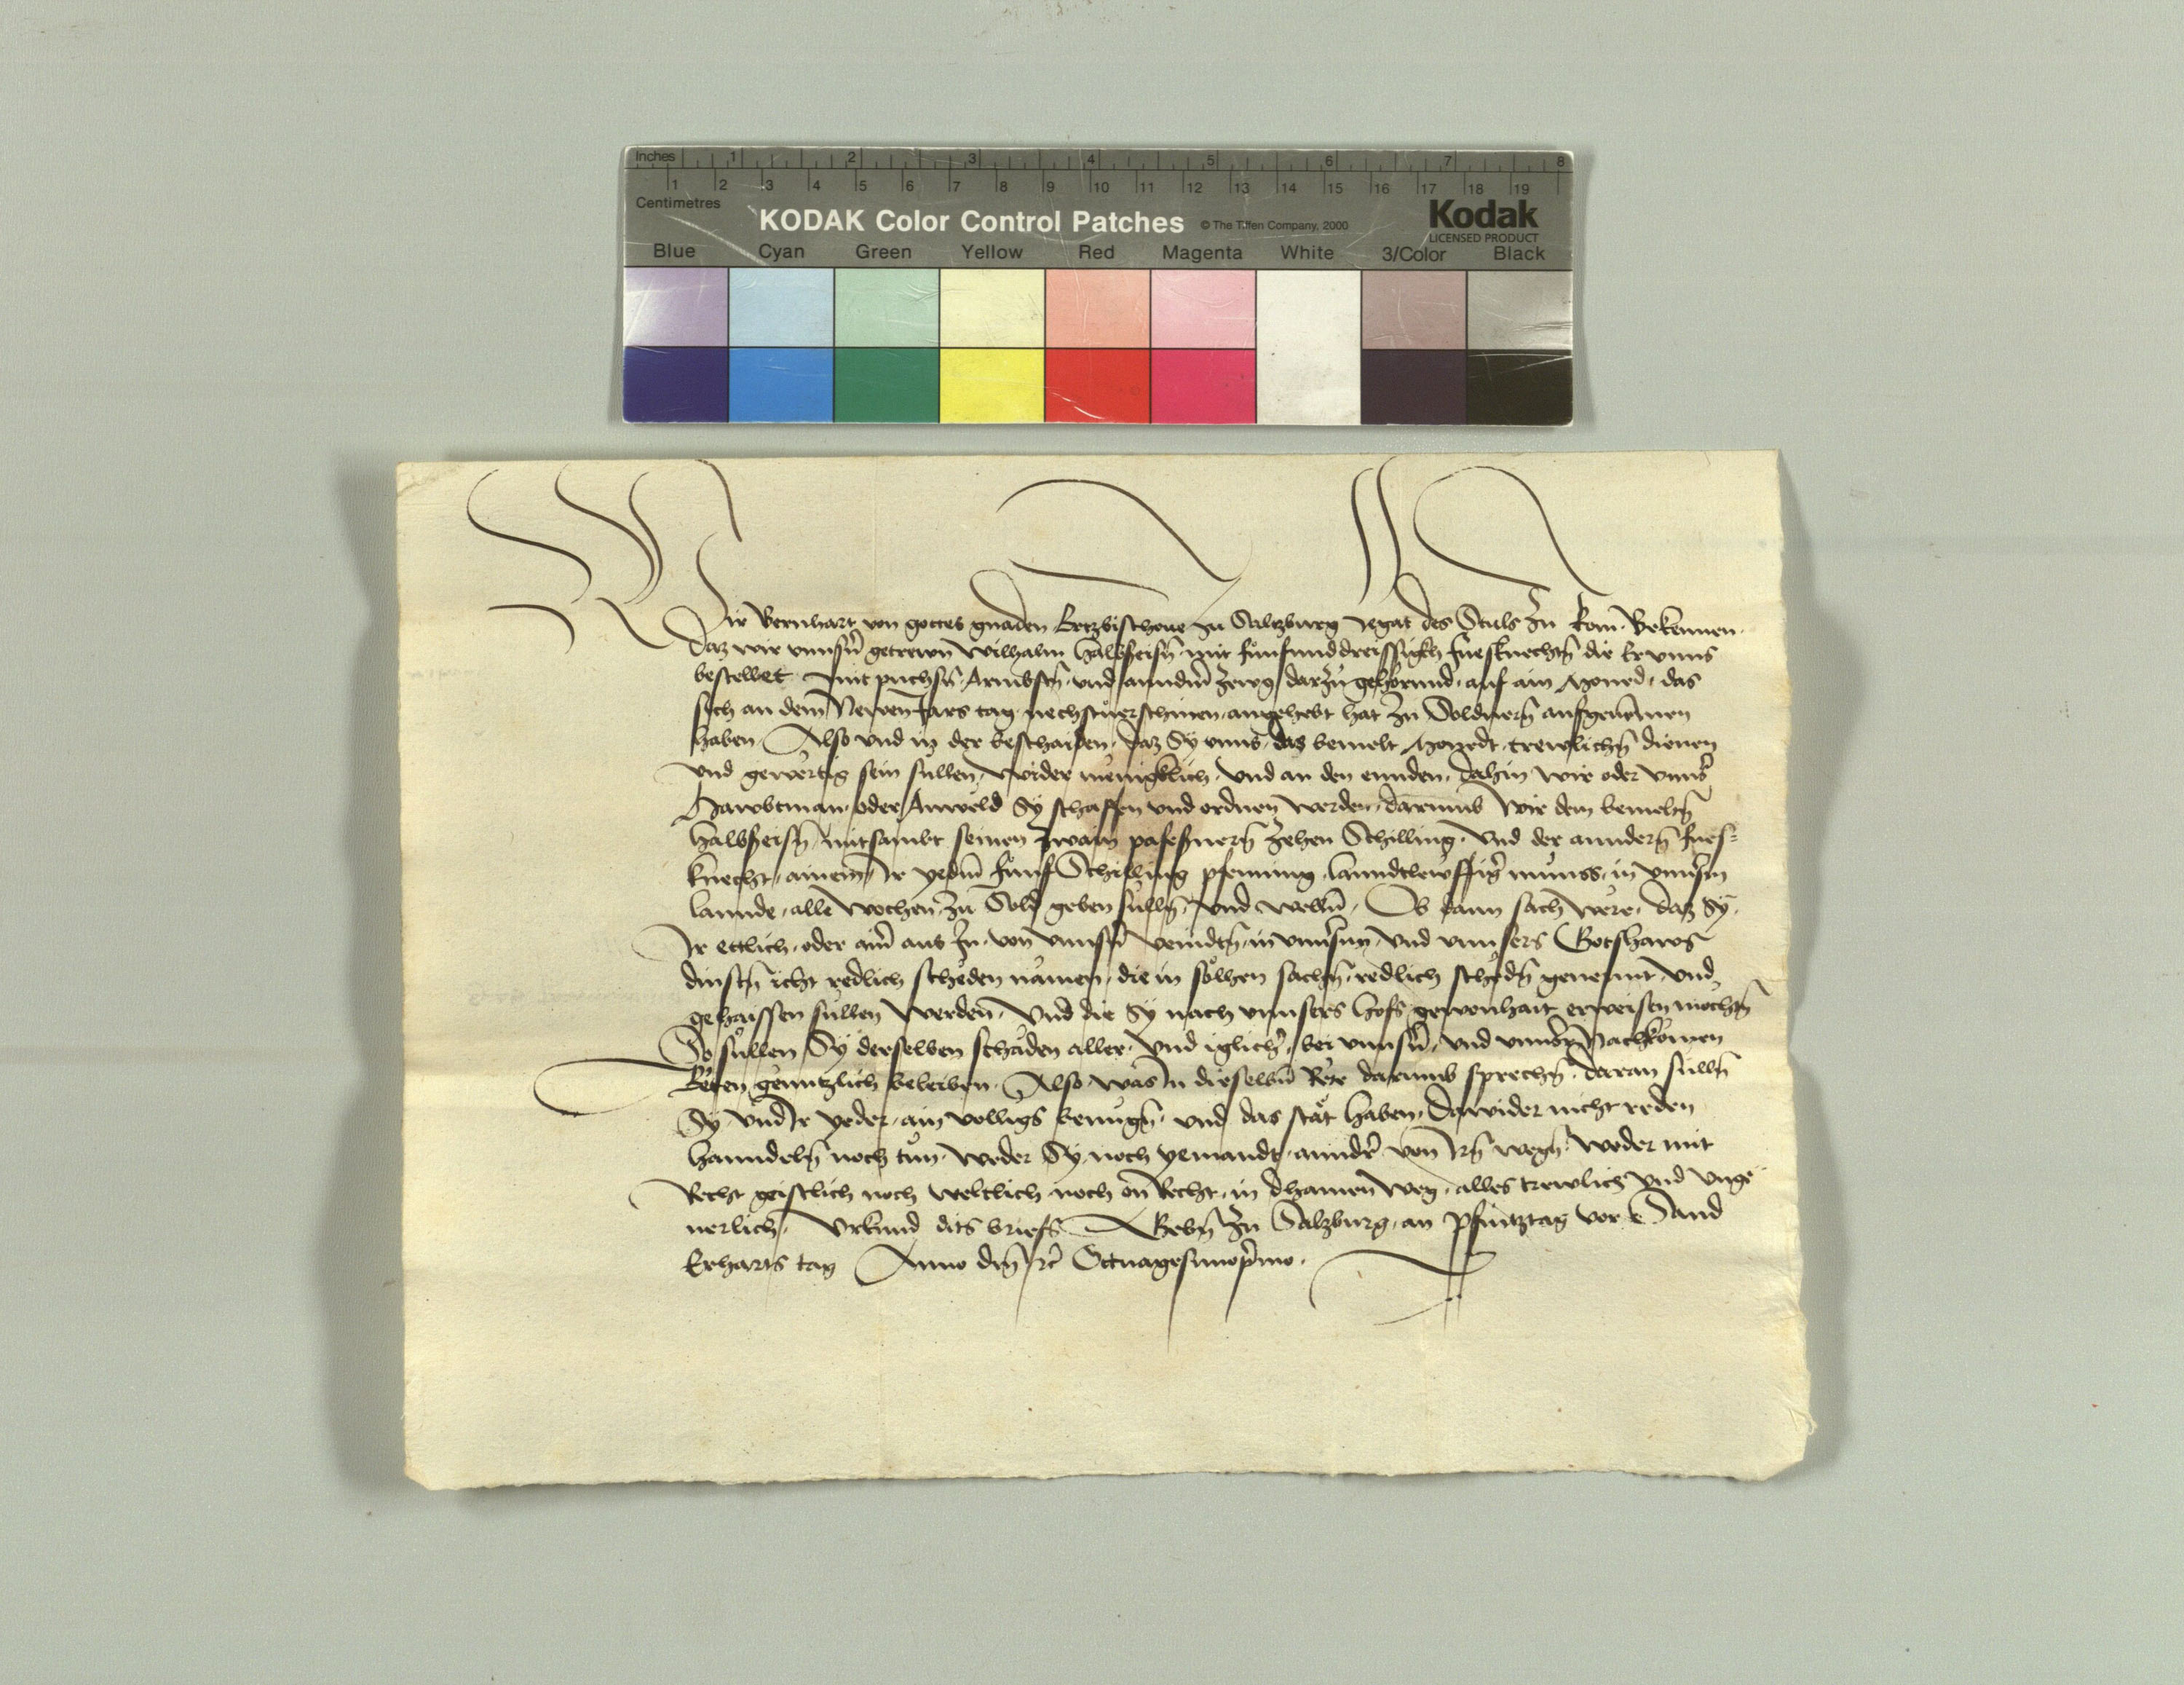 Inches 1 2 3 4 5 6 7 8
1 2 3 4 5 6 7 8 9 10 11 12 13 14 15 16 17 18 19
Centimetres
KODAK Color Control Patches © The Tiffen Company, 2000 Kodak
LICENSED PRODUCT
Blue Cyan Green Yellow Red Magenta White 3/Color Black
Wir Bernhart von gottes gnaden Ertzbischoue zu Saltzburg Legat des Stuls zu Rom. Bekennen.
daz wir vnnsn̄ getrewn̄ Wilhalm Halbheisn̄ mit funfunddreissigkh fuesknechtn̄ die Er vnns
bestellet mit puchsn̄ Armbstn̄ vnd anndm̄ zewg darzu gehorund, auf ain Moned, das
sich an dem Newen Jars tag nechstuerschinen angehebt hat zu Soldnern̄ aufgenomen
haben. Also vnd in der beschaiden, daz Sy vnns das bemelt Monedt trewlichn̄ dienen
vnd gewertig sein sullen, wider menigklich, vnd an den ennden, dahin wir oder vnnsr̄
Hawbtman oder Anweld Sy schaffen vnd ordnen werden, darumb wir dem bemeltn̄
Halbheisn̄ mitsambt seinen zwain pafesnern̄ zehen Schilling, Vnd der anndern̄ fues-
knecht, ainem Ir yedm̄ funf Schilling pfenning lanndtlewffigr̄ munss, in vnnsrm
lannde, alle Wochen, zu Sold geben sulln̄, vnd welln̄. Ob dann sach were, daz Sy,
Ir ettlich, oder ainr̄ aus In, von vnnsrn̄ veindtn̄, in vnnsrnn, vnd vnnsers Gotshaws
dinstn̄ icht redlich scheden namen, die in solhen sachn̄, redlich schedn̄ genennt, vnd
gehaissen sullen werden, Vnd die Sy nach vnnsers Hofs gewonhait erweisen mochtn̄
So sullen Sy derselben schäden aller, vnd iglichr̄, bei vnnsrn̄, vnd vnnsrr Nachkomen
Reten genntzlich beleiben. Also was In dieselbn̄ Rete darumb sprechn̄, daran sulln̄
Sy, vnd Ir yeder, ain volligs benugn̄, vnd das stät haben, Dawider nicht reden
hanndeln̄ noch tun, weder Sy, noch yemandt, anndrr̄ von Irn̄ wegn̄, weder mit
Recht geistlich noch weltlich, noch on Recht, in dhainen weg, alles trewlich vnd vnge
uerlich. Vrkund dits briefs Gebn̄ zu Salzburg, an Pfintztag vor Sand
Erharts tag Anno dn̄i rc̄ Octuagesimopr̄mo.